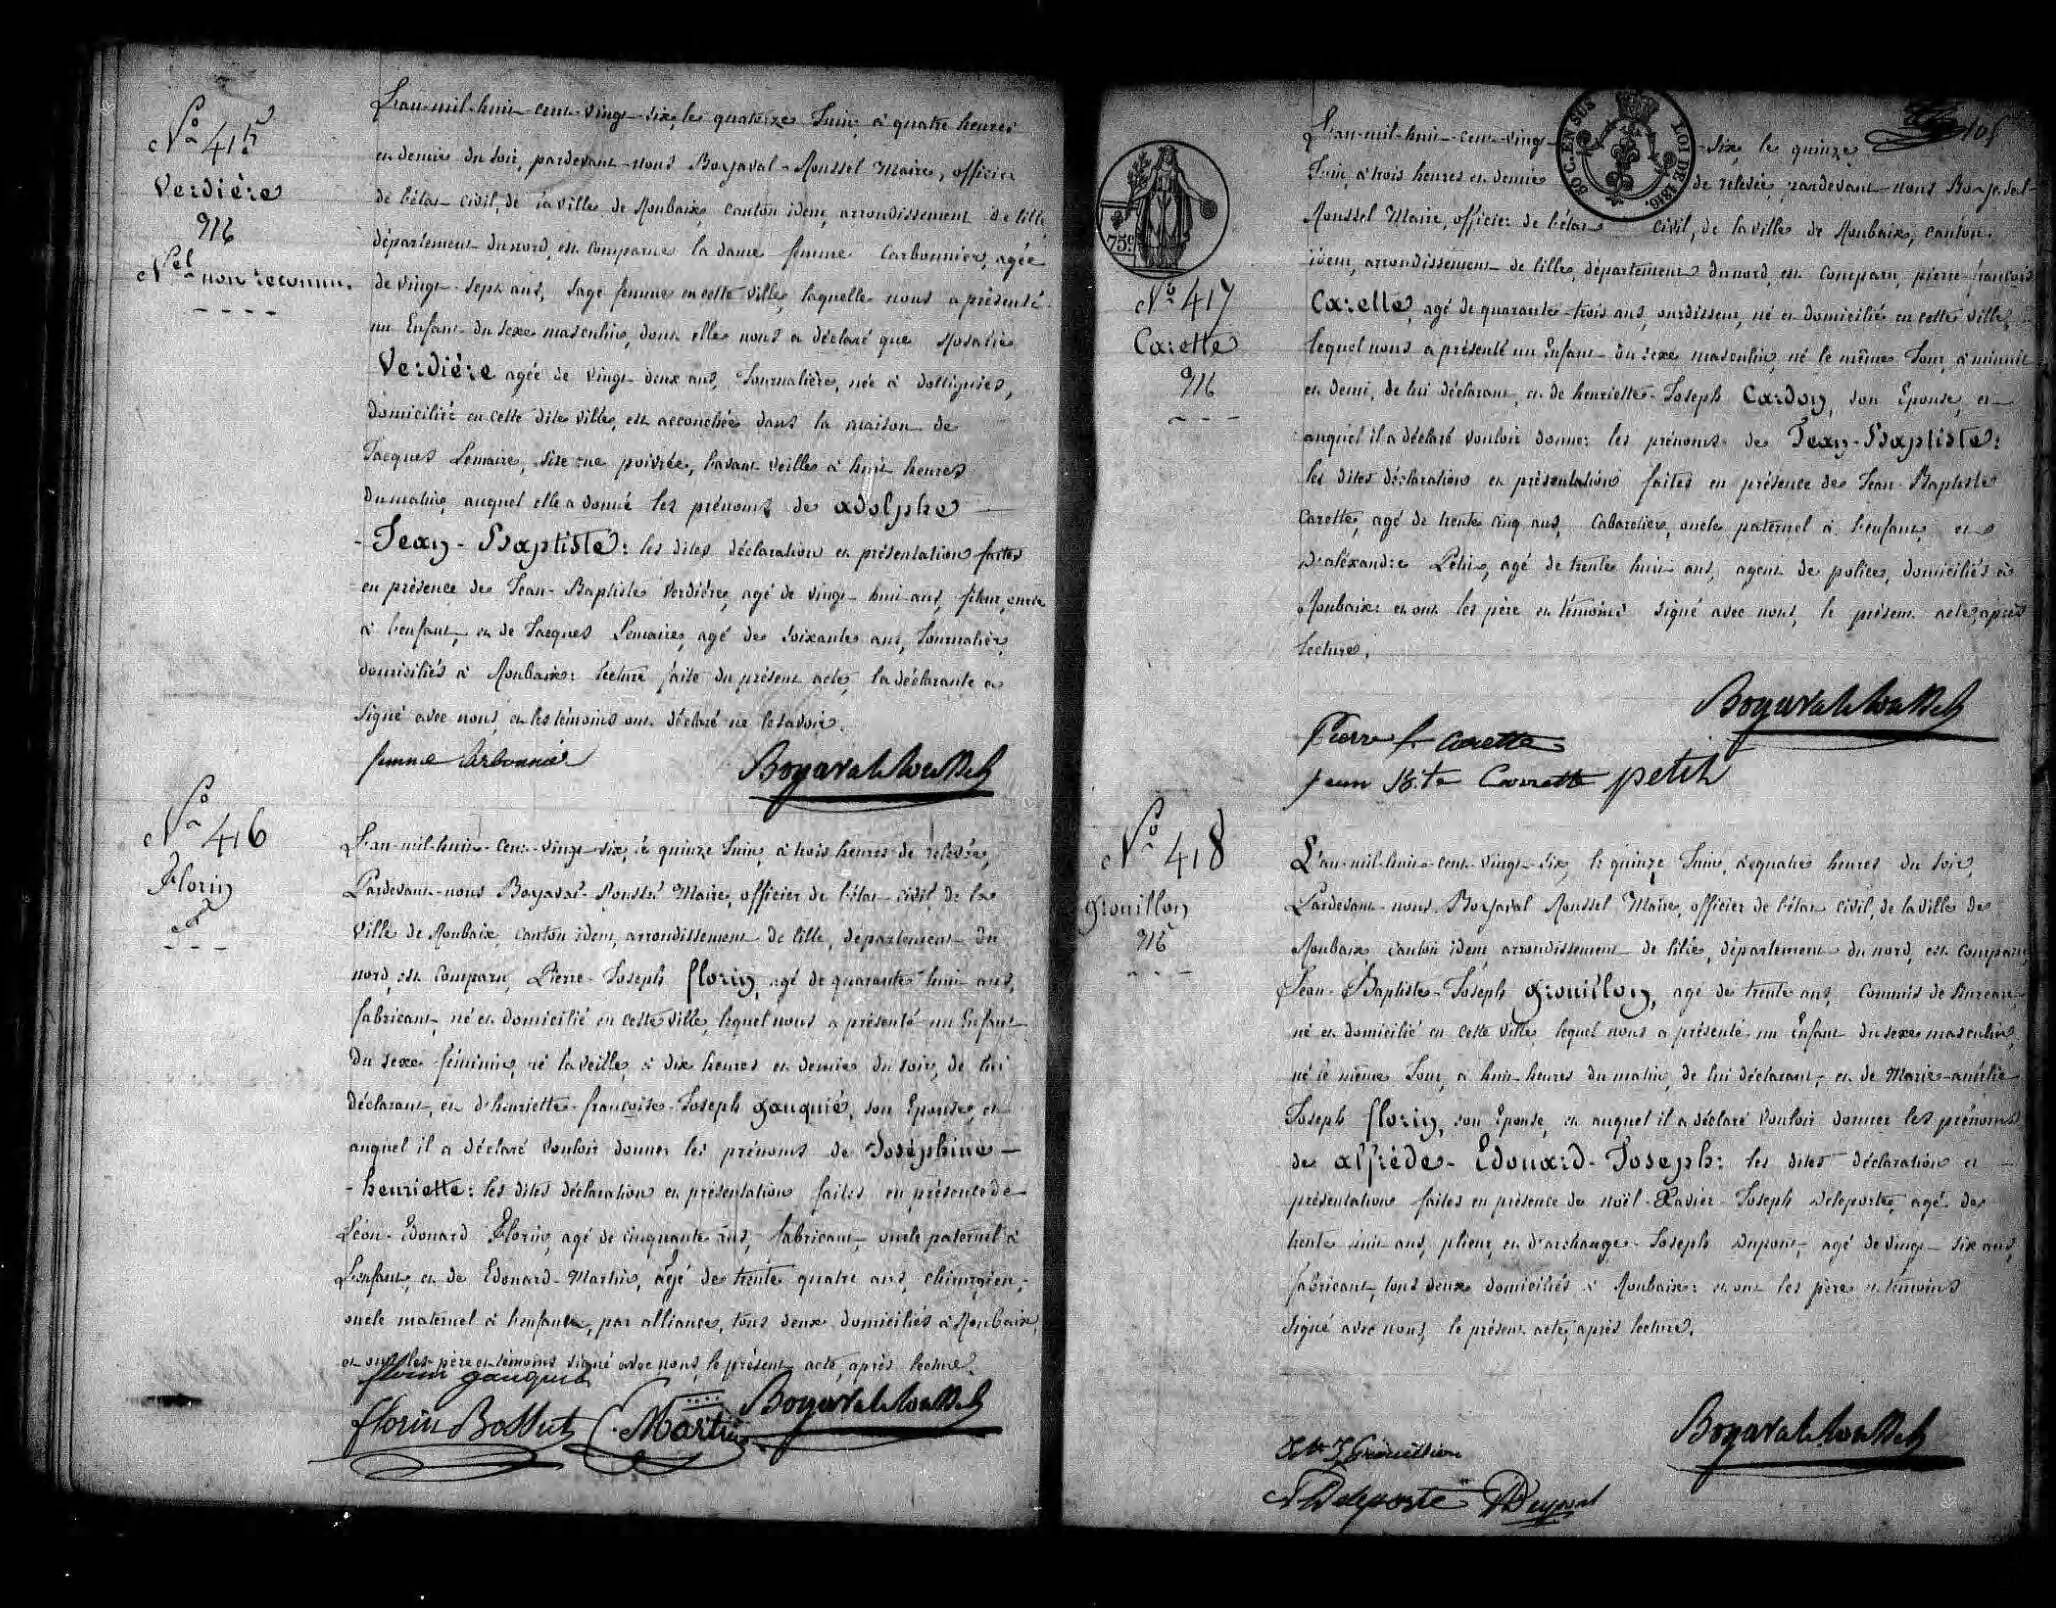 No 415
Verdière
Nel non reconnu.
L'an mil huit cent vingt six, le quatorze Juin, à quatre heures
et demie du soir, pardevant nous Boyaval-Roussel Maire, officier
de l'état civil, de la ville de Roubaix, canton idem, arrondissement de lille,
département du nord, est comparue la dame femme Carbonnier, agée
de vingt-sept ans, sage femme en cette ville, laquelle nous a présenté
un Enfant du sexe masculin, dont elle nous a déclaré que Rosalie
Verdière agée de vingt deux ans, Journalière, née à dottignies,
domiciliée en cette dite ville, est accouchée dans la maison de
Jacques Lemaire, sise rue poivrée, l'avant veille à huit heures
du matin, auquel elle a donné les prénoms de adolphe
- Jean-Baptiste: les dites déclaration et présentation faites
en présence de Jean-Baptiste Verdière, agé de vingt-huit ans, fileur, oncle
à l'enfant, et de Jacques Lemaire, agé de soixante ans, Journalier,
domiciliés à Roubaix: lecture faite du présent acte, la déclarante a
signé avec nous, et les témoins ont déclaré ne le savoir.
femme Carbonnier Boyaval-Roussel
No 416
Florin
L'an mil huit cent vingt six, le quinze Juin, à trois heures de relevée,
Pardevant nous Boyaval-Roussel Maire, officier de l'état civil, de la
ville de Roubaix, canton idem, arrondissement de lille, département du
nord, est comparu, Pierre-Joseph florin, agé de quarante huit ans,
fabricant, né et domicilié en cette ville, lequel nous a présenté un Enfant
du sexe féminin, né la veille, à dix heures et demie du soir, de lui
déclarant, et d'henriette-françoise-Joseph gauquié, son Epouse, et
auquel il a déclaré vouloir donner les prénoms de Joséphine-
-henriette: les dites déclaration et présentation faites en présence de
Léon-Edouard Florin, agé de cinquante ans, fabricant, oncle paternel à
L'enfant, et de Edouard-Martin, agé de trente quatre ans, chirurgien,
oncle maternel à l'enfant, par alliance, tous deux domiciliés à Roubaix,
et ont les père et témoins signé avec nous, le présent acte, après lecture.
florin gauquié
florin Bossut C. Martin Boyaval-Roussel
LOI DE 1816.
50 C. EN SUS
75c
No 417
Carette
L'an mil huit cent vingt-six, le quinze
Juin, à trois heures et demie de relevée, pardevant nous Boyaval-
Roussel Maire, officier de l'état civil, de la ville de Roubaix, canton
idem, arrondissement de lille, département du nord, est comparu, pierre-françois
Carette, agé de quarante-trois ans, ourdisseur, né et domicilié en cette ville,
lequel nous a présenté un Enfant du sexe masculin, né le même Jour, à minuit
et demi, de lui déclarant, et de henriette-Joseph Cardon, son Epouse, et
auquel il a déclaré vouloir donner les prénoms de Jean-Baptiste:
les dites déclaration et présentation faites en présence de Jean-Baptiste
Carette, agé de trente cinq ans, Cabaretier, oncle paternel à l'enfant, et
d'aléxandre Pétit, agé de trente huit ans, agent de police, domiciliés à
Roubaix: et ont les père et témoins signé avec nous, le présent acte, après
lecture.
Boyaval-Roussel
Pierre f. carette
jean Bte Carette petit
No 418
grouillon
L'an mil huit cent vingt-six, le quinze Juin, à quatre heures du soir,
Pardevant nous Boyaval Roussel Maire, officier de l'état civil, de la ville de
Roubaix, canton idem, arrondissement de lille, département du nord, est comparu
Jean-Baptiste-Joseph grouillon, agé de trente ans, commis de Bureau,
né et domicilié en cette ville, lequel nous a présenté un Enfant du sexe masculin,
né le même Jour, à huit heures du matin, de lui déclarant, et de Marie-amélie
Joseph florin, son Epouse, et auquel il a déclaré vouloir donner les prénoms
de alfrède-Edouard-Joseph: les dites déclaration et
présentation faites en présence de noël-Xavier-Joseph deleporte, agé de
trente huit ans, plieur, et d'archange-Joseph dupont, agé de vingt-six ans,
fabricant, tous deux domiciliés à Roubaix: et ont les père et témoins
signé avec nous, le présent acte, après lecture.
Boyaval-Roussel
Jn Bte J Grouillon
Deleporte